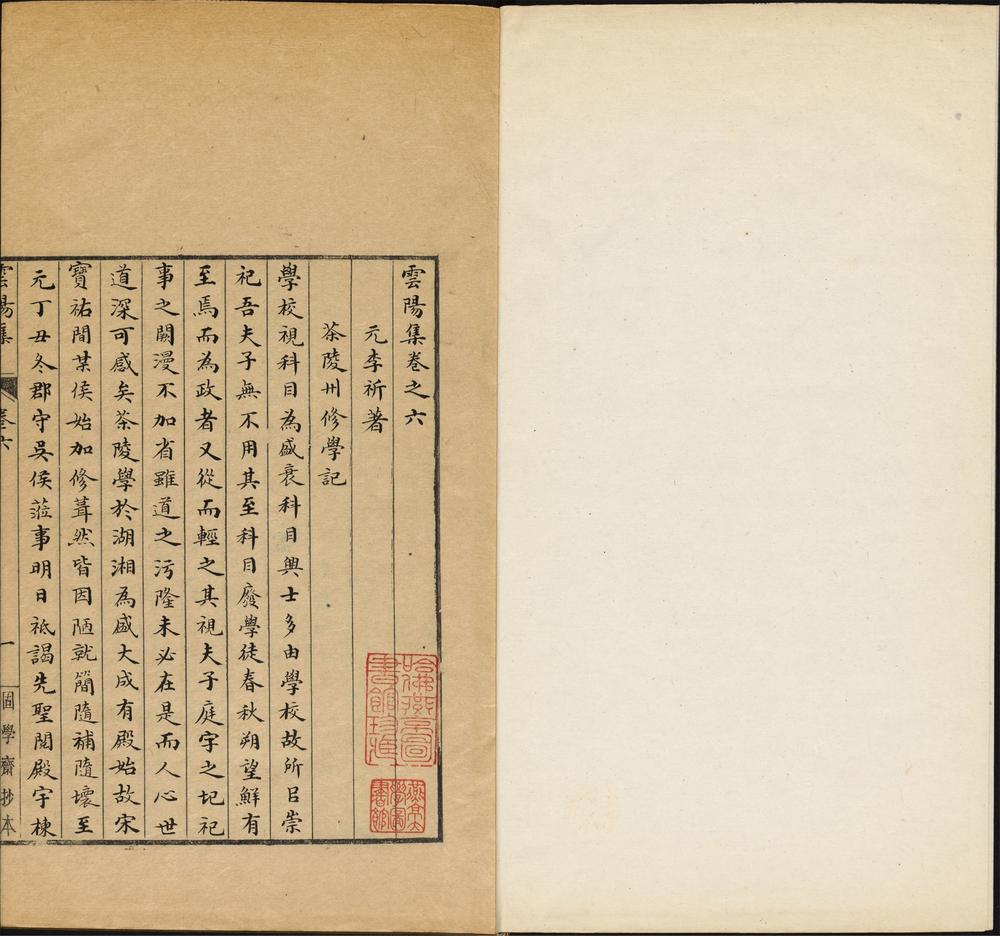 雲陽集卷之六
元李祈著
茶陵州修學記
學校視科目為盛衰科目興士多由學校故所㠯崇
祀吾夫子無不用其至科目廢學徒春秋朔望鮮有
至焉而為政者又從而輕之其視夫子庭宇之圮祀
事之闕漫不加省雖道之污隆未必在是而人心世
道深可感矣茶陵學於湖湘為盛大成有殿始故宋
寶祐間某侯始加修葺然皆因陋就簡隨補隨壞至
元丁丑冬郡守吳侯蒞事明日祗謁先聖閱殿宇棟
雲陽集
卷六
一
固學齋抄本
哈佛燕京圖
書館珍藏
燕京大
學圖
書館